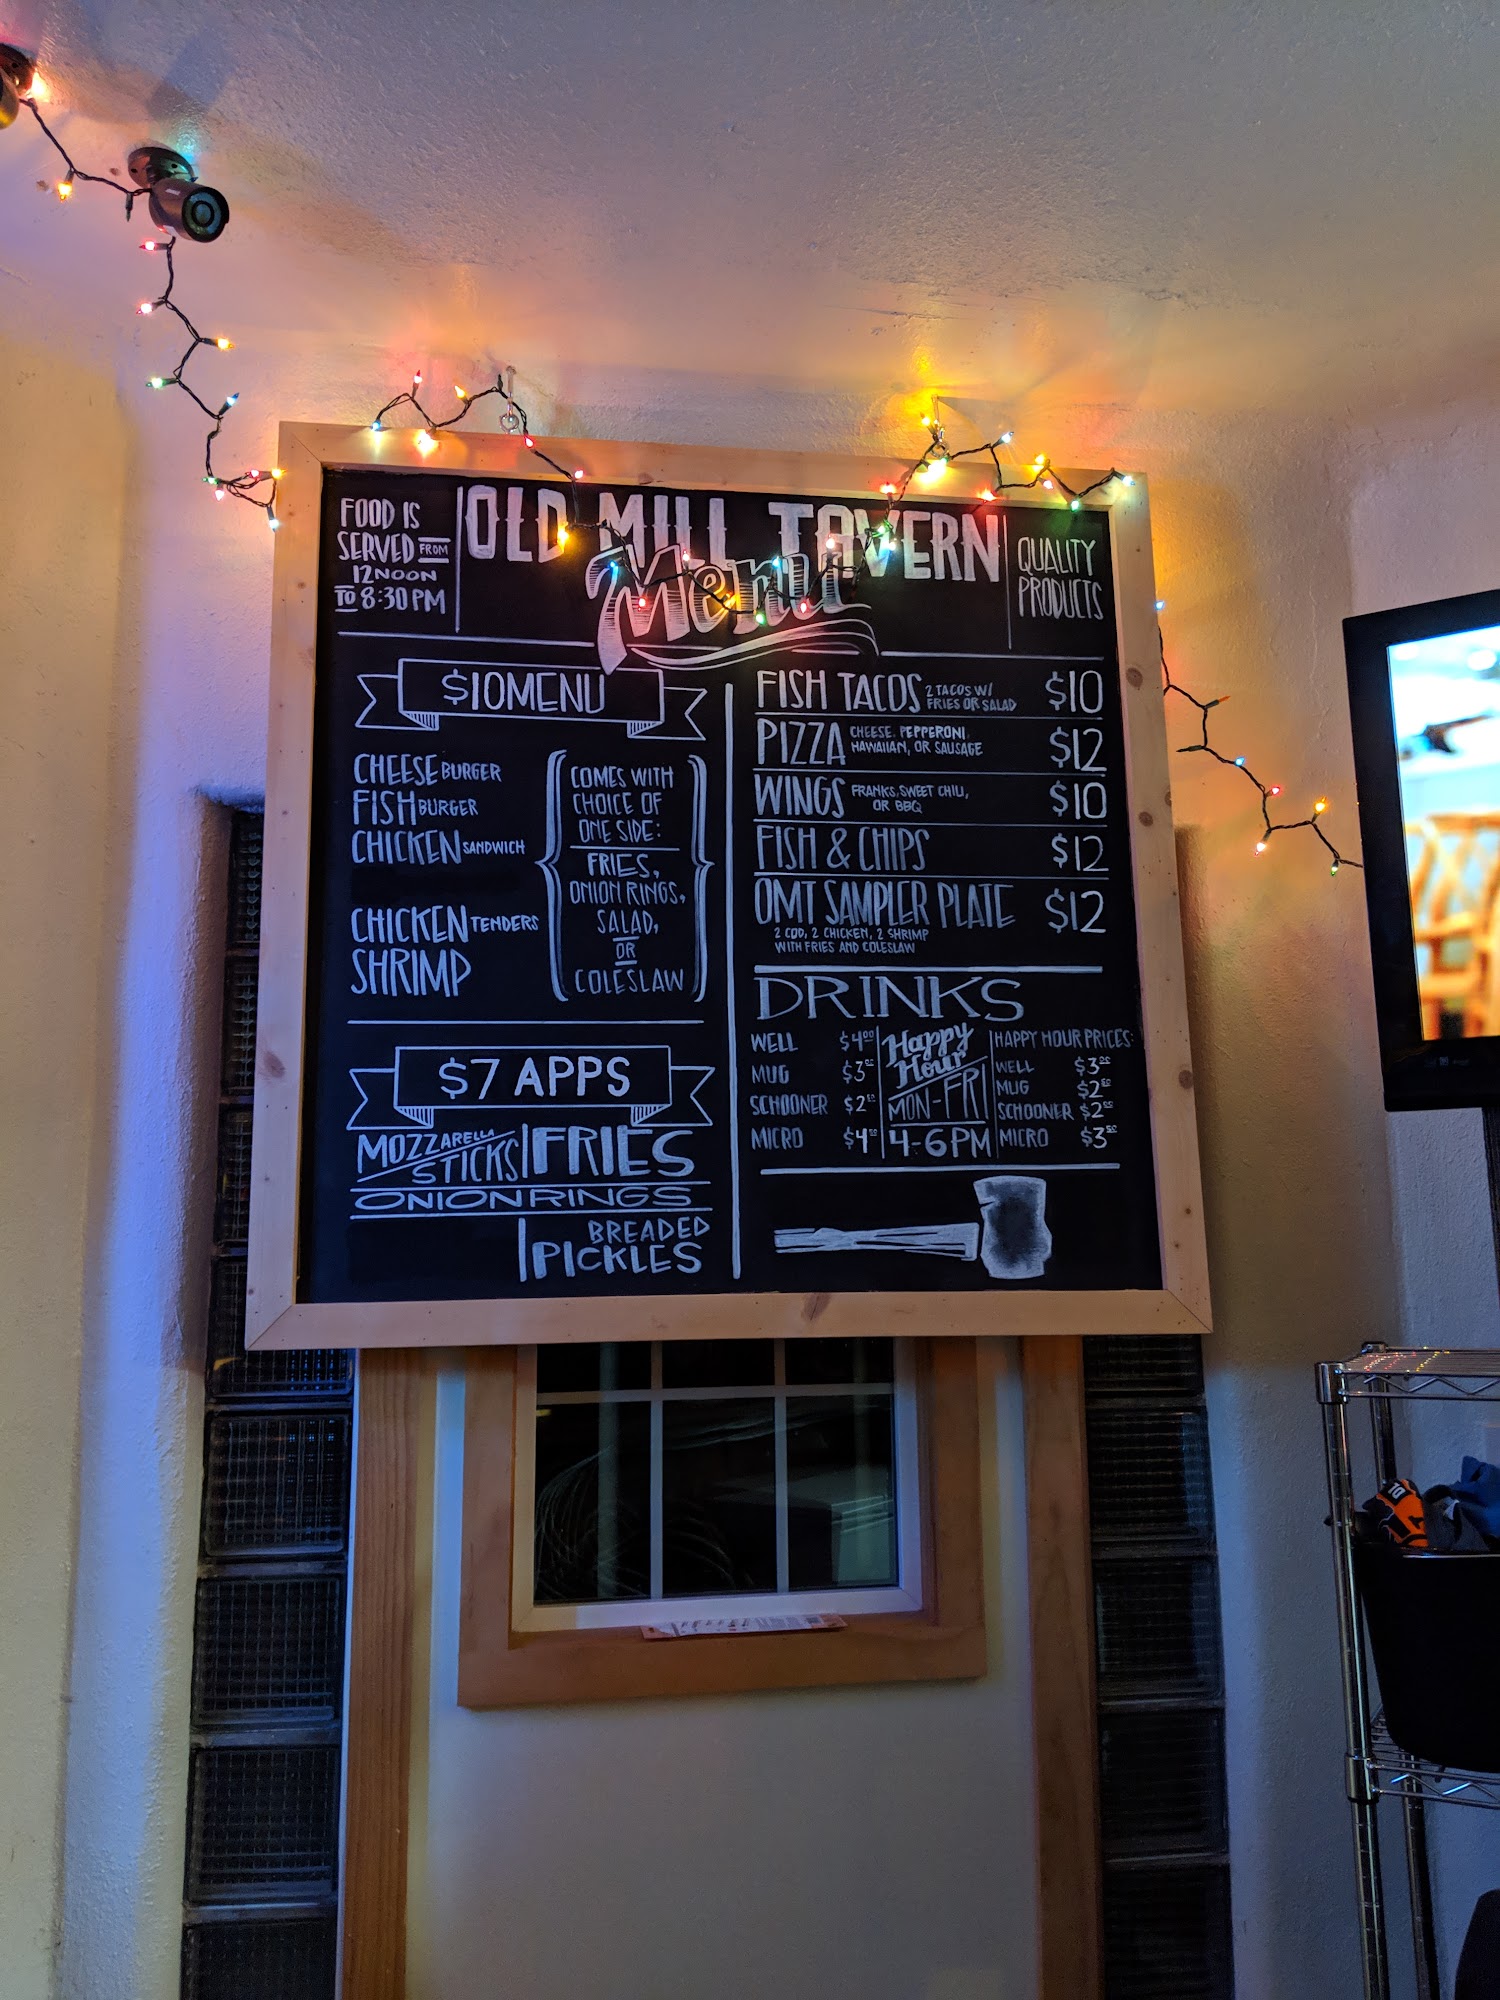 FOOD IS
SERVED FROM
12 NOON
TO 8:30 PM
OLD MILL TAVERN
Menu
QUALITY
PRODUCTS
$10 MENU
CHEESE BURGER
FISH BURGER
CHICKEN SANDWICH
CHICKEN TENDERS
SHRIMP
COMES WITH
CHOICE OF
ONE SIDE:
FRIES,
ONION RINGS,
SALAD,
OR
COLESLAW
$7 APPS
MOZZARELLA
STICKS
FRIES
ONION RINGS
BREADED
PICKLES
FISH TACOS 2 TACOS W/ FRIES OR SALAD $10
PIZZA CHEESE, PEPPERONI, HAWAIIAN, OR SAUSAGE $12
WINGS FRANKS, SWEET CHILI, OR BBQ $10
FISH & CHIPS $12
OMT SAMPLER PLATE $12
2 COD, 2 CHICKEN, 2 SHRIMP
WITH FRIES AND COLESLAW
DRINKS
WELL $4⁰⁰
MUG $3
SCHOONER $2
MICRO $4
Happy
Hour
MON-FRI
4-6PM
HAPPY HOUR PRICES:
WELL $3
MUG $2
SCHOONER $2
MICRO $3